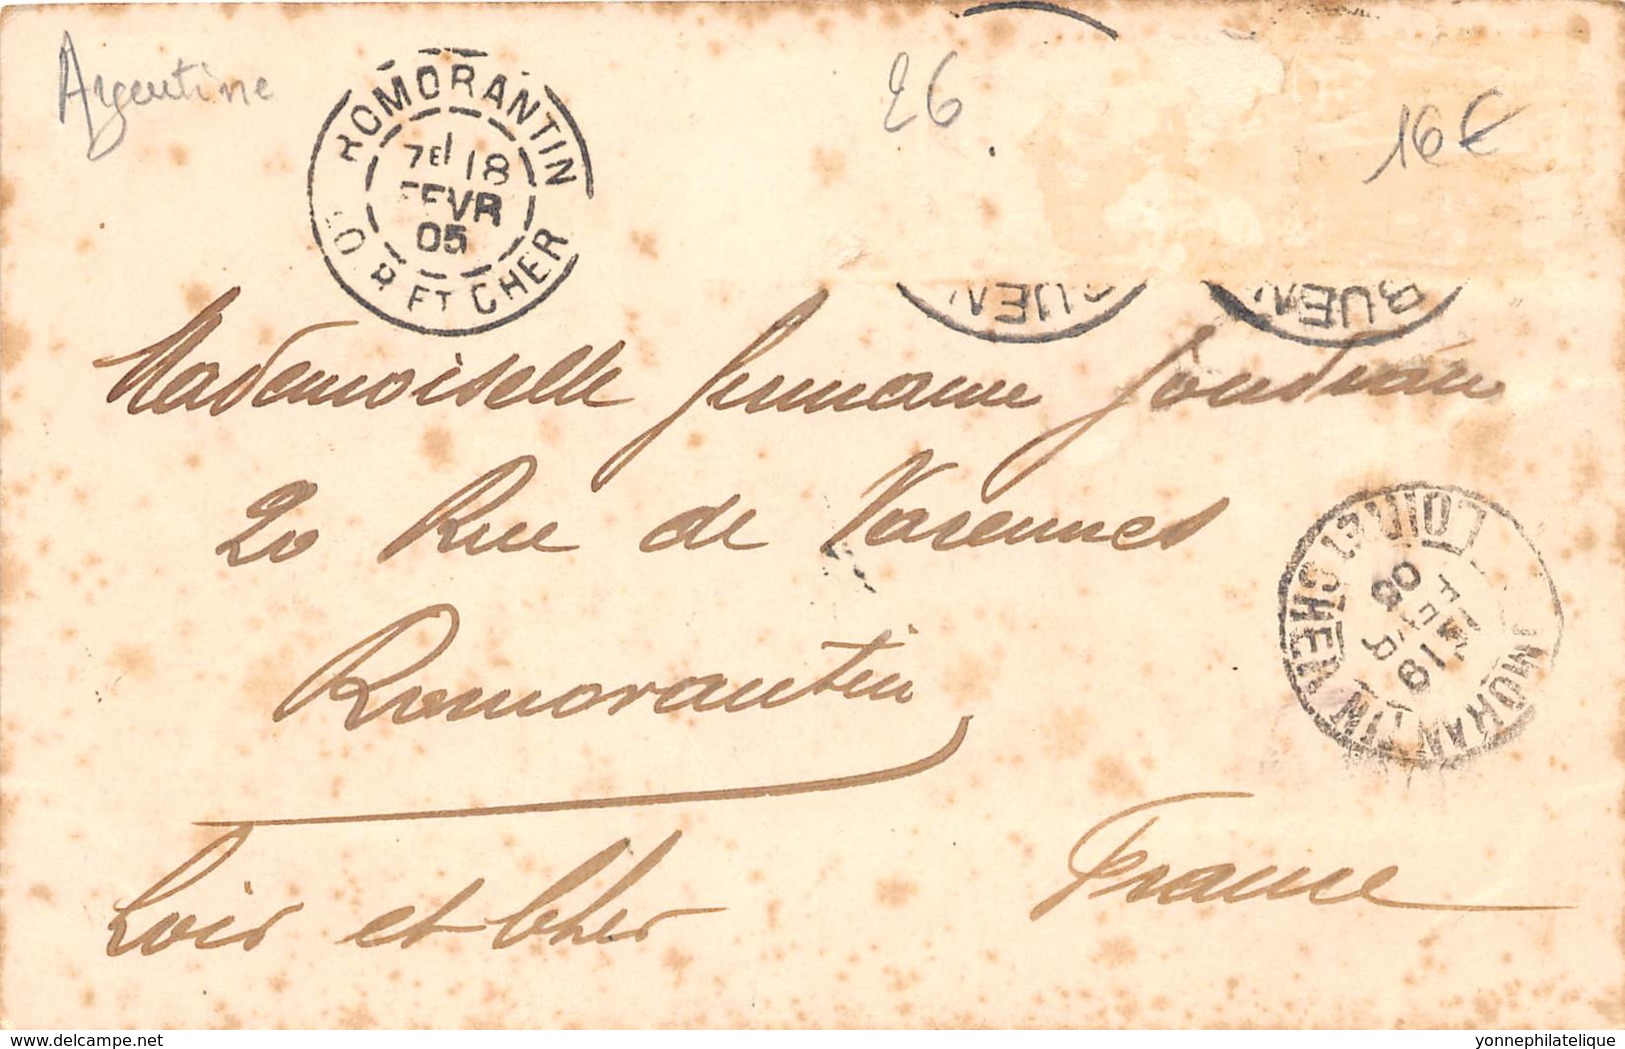 Argentine
26
16€
ROMORANTIN
7E 18
FEVR
05
LOIR ET CHER
BUEN
BUEN
Mademoiselle Germaine
20 Rue de Varennes
Romorantin
Loir et Cher
France
ROMORANTIN
18
FEVR
05
LOIR ET CHER
yonnephilatelique